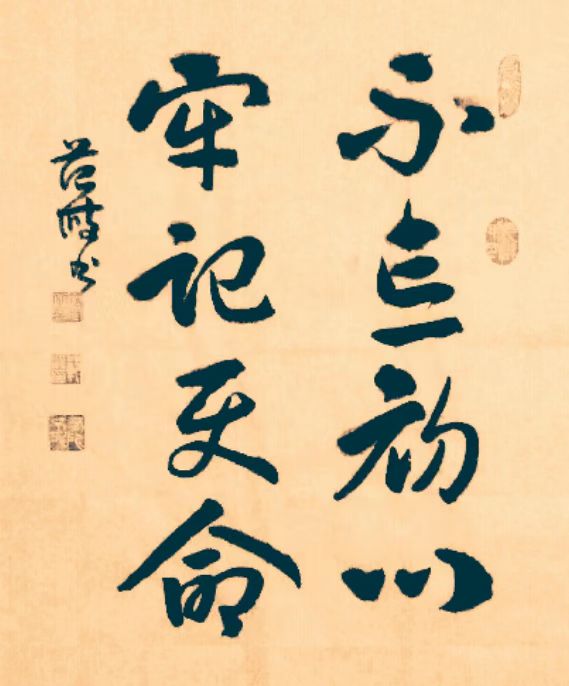 不忘初心
牢记使命
范时书